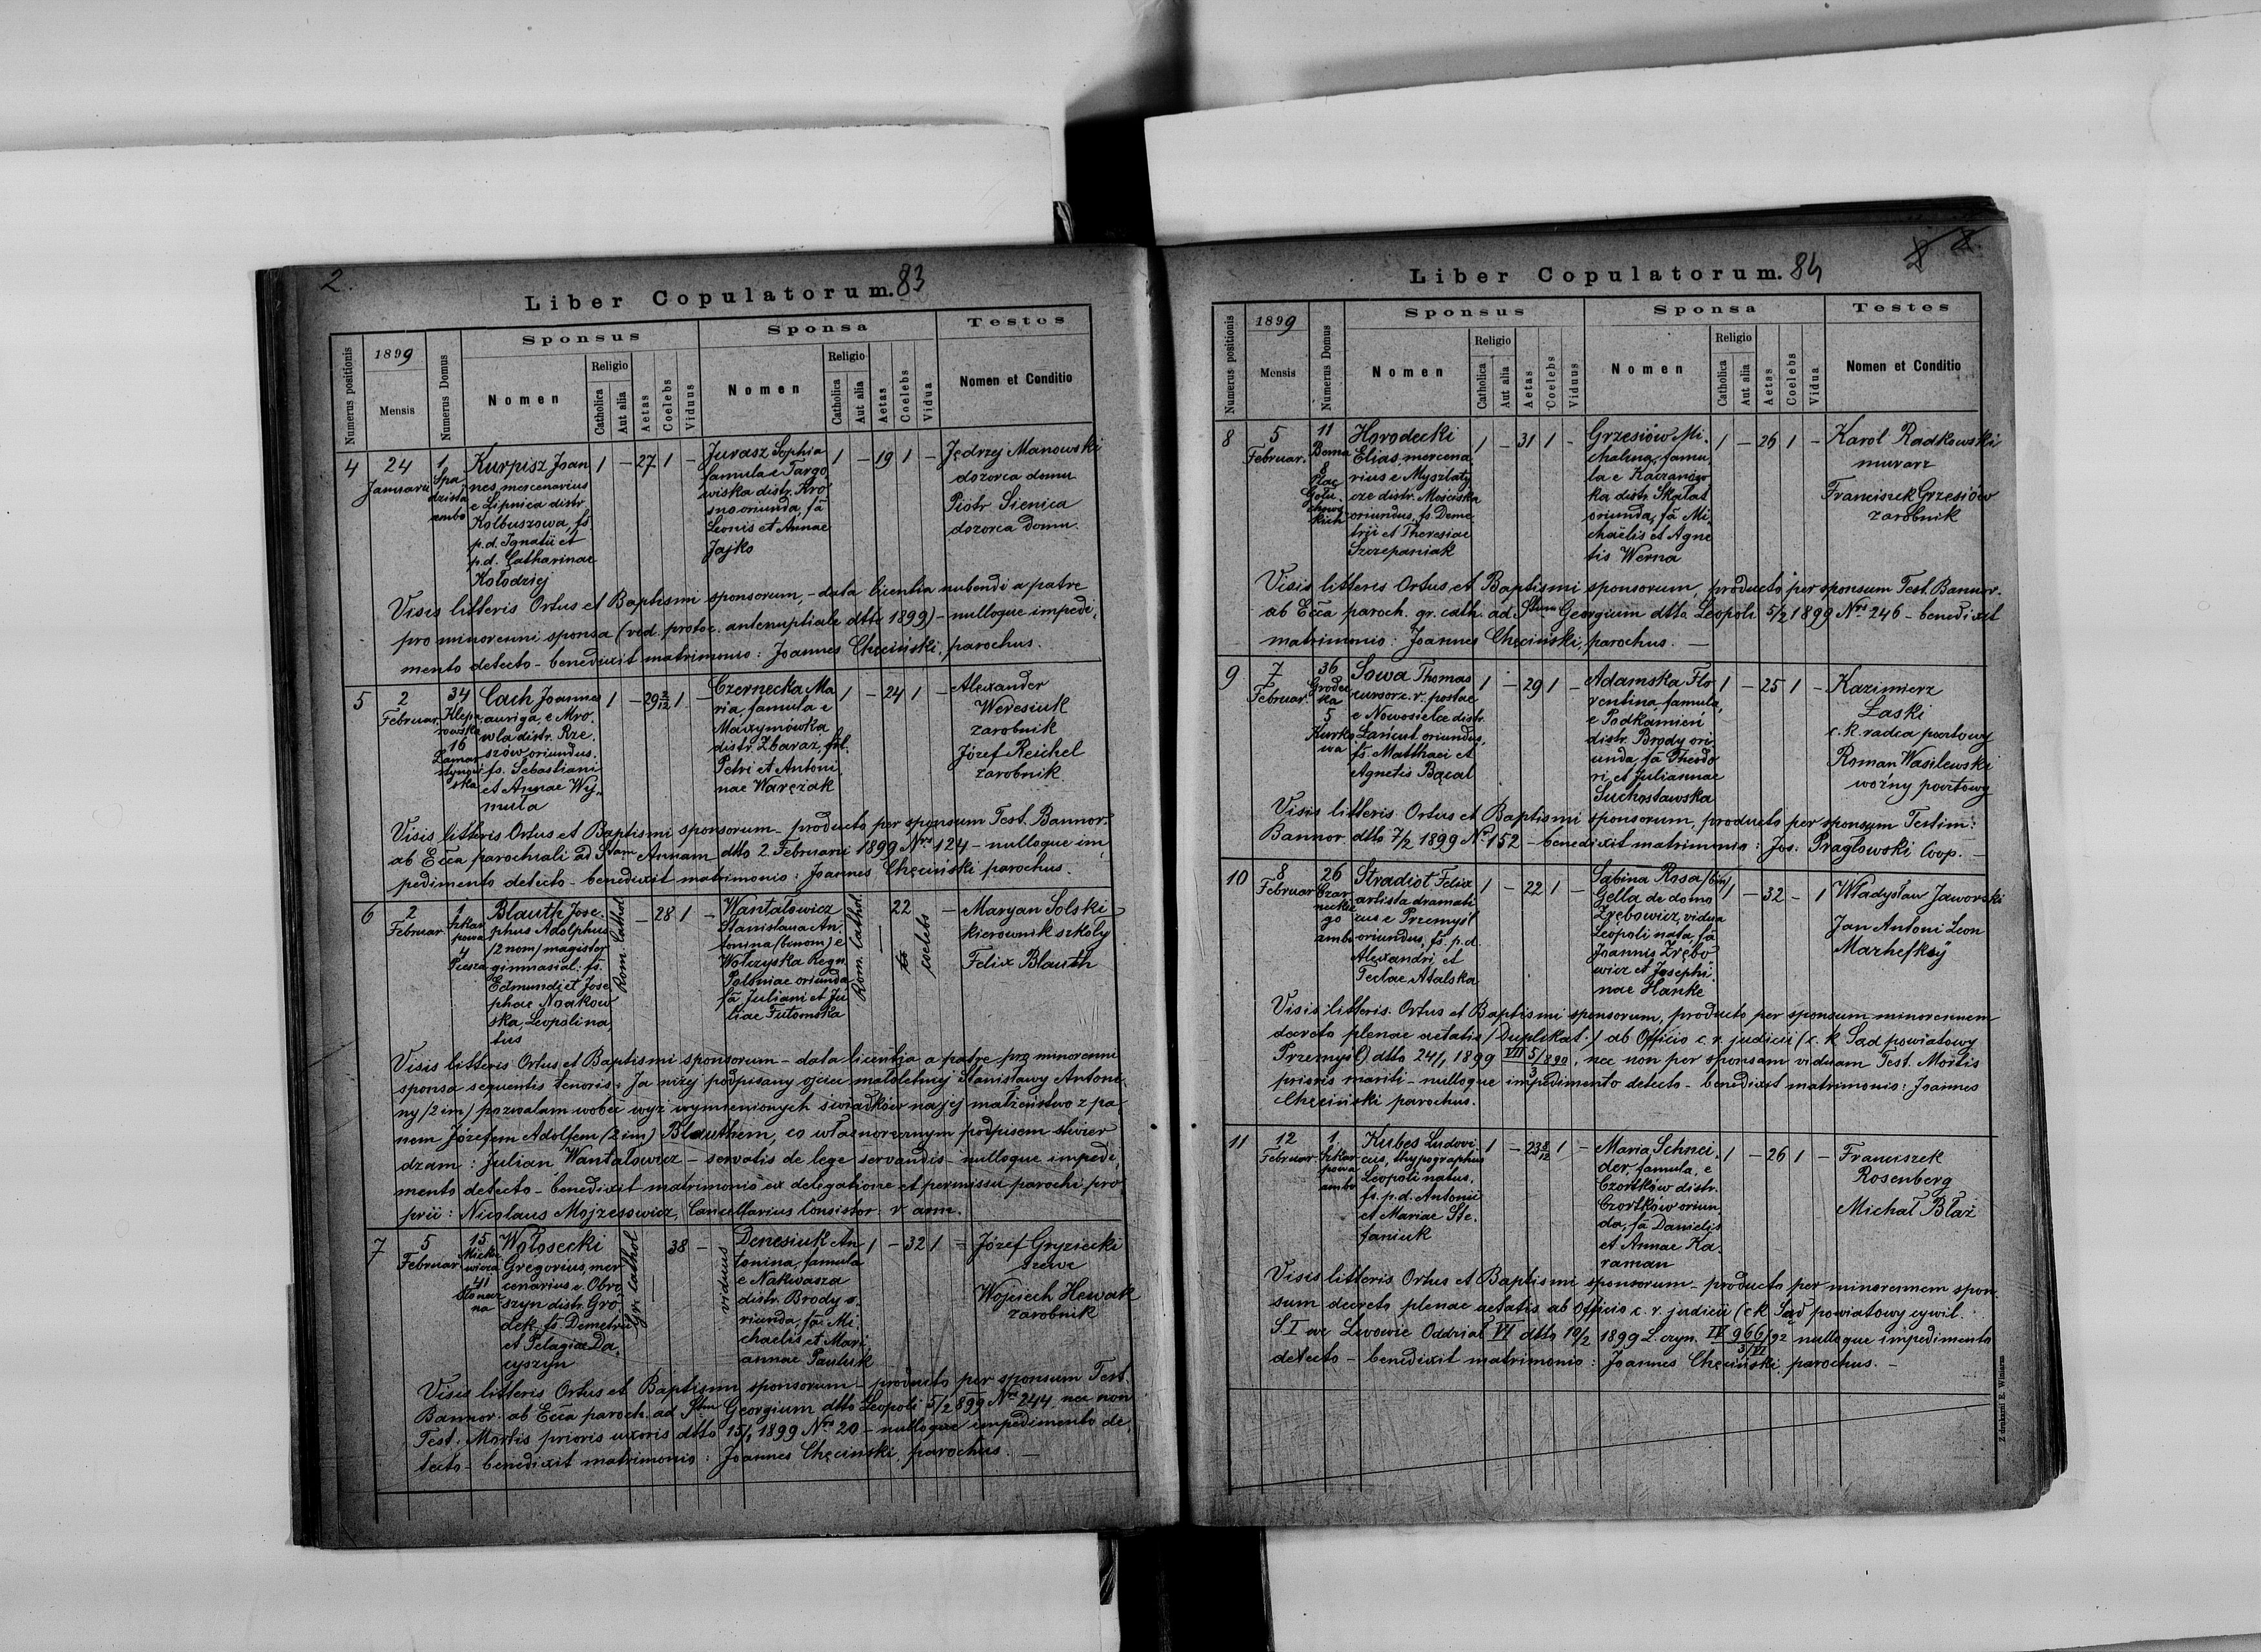 2.
Liber Copulatorum. 83
Numerus positionis
1899
Mensis
Numerus Domus
Sponsus
Nomen
Religio
Catholica
Aut alia
Aetas
Coelebs
Viduus
Sponsa
Nomen
Religio
Catholica
Aut alia
Aetas
Coelebs
Vidua
Testes
Nomen et Conditio
4
24
Januarii
1
Spa
dzista
ambo
Kurpisz Joan
nes, mercenarius
e Lipnica distr.
Kolbuszowa, fs.
p.d. Ignatii et
p.d. Catharinae
Kołodziej
1 – 27 1 –
Jurasz Sophia
famula e Targo
wiska distr. Kro
sno oriunda, fa
Leonis et Annae
Jajko
1 – 19 1 –
Jędrzej Manowski
dozorca domu
Piotr Sienica
dozorca domu.
Visis litteris Ortus et Baptismi sponsorum, – data licentia nubendi a patre
pro minorenni sponsa (vid. protoc. antenuptiale dtto 1899) – nulloque impedi,
mento detecto – benedixit matrimonio: Joannes Chęciński, parochus.
5
2
Februar.
34
Klepa
rowska
16
Zamar
stynow
ska
Cach Joannes
auriga, e Mro.
wla distr. Rze.
szów oriundus.
fs. Sebastiani
et Annae Wy.
muła
1 – 29 2/12 1 –
Czernecka Ma
ria, famula e
Maxymówka
distr. Zbaraż, fil.
Petri et Antoni
nae Warczak
1 – 24 1 –
Alexander
Weresiuk
zarobnik
Józef Reichel
zarobnik
Visis litteris Ortus et Baptismi sponsorum – producto per sponsum Test. Bannor.
ab Ecca parochiali ad Stam Annam dtto 2. Februarii 1899 Nro 124 – nulloque im
pedimento detecto – benedixit matrimonio: Joannes Chęciński parochus.
6
2
Februar.
1
Szkar
powa
4
Piesza
Blauth Jose
phus Adolphus
/2 nom/ magister
gimnasial: fs.
Edmundi et Jose
phae Noakow
ska, Leopoli na
tus
Rom. Cathol
– 28 1 –
Wantałowicz
Stanislaua An,
tonina (binom) e
Wołczyska Regn.
Poloniae oriunda
fa Juliani et Ju
liae Futomska
Rom. Cathol
22
coelebs
–
Maryan Solski
kierownik szkoły
Felix Blauth
Visis litteris Ortus et Baptismi sponsorum – data licentia a patre pro minorenni
sponsa sequentis tenoris: Ja niżej podpisany ojciec małoletniej Stanisławy Antoni.
ny /2 im/ pozwalam wobec wyż wymienionych świadków na jej małżeństwo z pa
nem Józefem Adolfem (2 im) Blauthem, co własnoręcznym podpisem stwier
dzam: Julian Wantałowicz – servatis de lege servandis – nulloque impedi,
mento detecto – benedixit matrimonio ex delegatione et permissu parochi pro
prii: Nicolaus Mojzesowicz, Cancellarius Consistor. r. arm.
7
5
Februar.
15
Micki
wicza
41
Słonecz
na
Wołosecki
Gregorius, mer
cenarius e Obro
szyn distr. Gro
dek, fs. Demetrii
et Pelagiae Da,
cyszyn
Gr. Cathol
38 –
viduus
Denesiuk An
tonina, famula
e Nakwasza
distr. Brody o.
riunda, fa Mi
chaelis et Mari
annae Pauluk
1 – 32 1 –
Józef Gryziecki
szewc
Wojciech Hewak
zarobnik
Visis litteris Ortus et Baptismi sponsorum – producto per sponsum Test.
Bannor. ab Ecca paroch. ad Stum Georgium dtto Leopoli 5/2 899 Nro 244 nec non
Test. Mortis prioris uxoris dtto 15/1 1899 Nro 20 – nulloque impedimento de,
tecto – benedixit matrimonio: Joannes Chęciński, parochus. –
Liber Copulatorum. 84
Numerus positionis
1899
Mensis
Numerus Domus
Sponsus
Nomen
Religio
Catholica
Aut alia
Aetas
Coelebs
Viduus
Sponsa
Nomen
Religio
Catholica
Aut alia
Aetas
Coelebs
Vidua
Testes
Nomen et Conditio
8
5
Februar.
11
Bema
8
Plac
Gołu.
chows
kich
Horodecki
Elias, mercena
rius e Myszlaty
cze distr. Mościska
oriundus, fs. Deme
trii et Theresiae
Szczepaniak
1 – 31 1 –
Grzesiów Mi.
chalina, famu,
la e Kaczanów
ka distr. Skałat
oriunda, fa Mi
chaëlis et Agne
tis Werna
1 – 26 1 –
Karol Radkowski
murarz
Franciszek Grzesiów
zarobnik
Visis litteris Ortus et Baptismi sponsorum, producto per sponsum Test. Bannor.
ab Ecca paroch. gr. cath. ad Stum Georgium dtto Leopoli 5/2 1899 Nro 246 – benedixit
matrimonio: Joannes Chęciński, parochus. –
9
7
Februar.
36
Grodec
ka
5
Kurko
wa
Sowa Thomas
cursor c. r. postae
e Nowosielce distr.
Łańcut oriundus,
fs. Matthaei et
Agnetis Bącal
1 – 29 1 –
Adamska Flo
rentina famula,
e Podkamień
distr. Brody ori
unda, fa Theodo
ri et Juliannae
Suchosławska
1 – 25 1 –
Kazimierz
Łaski
c. k. radca pocztowy
Roman Wasilewski
woźny pocztowy
Visis litteris Ortus et Baptismi sponsorum, producto per sponsum Testim:
Bannor. dtto 7/2 1899 No 152 – benedixit matrimonio: Jos: Pragłowski Coop. –
10
8
Februar.
26
Czar
neckie
go
ambo
Stradiot Felix
artista dramati
cus e Przemyśl
oriundus, fs. p.d.
Alexandri et
Teclae Atalska
1 – 22 1 –
Sabina Rosa /bin/
Gella de domo
Zrębowicz, vidua
Leopoli nata, fa
Joannis Zrębo
wicz et Josephi
nae Hanke
1 – 32 – 1
Władysław Jaworski
Jan Antoni Leon
Marhefkÿ
Visis litteris Ortus et Baptismi sponsorum, producto per sponsum minorennem
decreto plenae aetatis / Duplikat / ab Officio c. r. judicii (c. k. Sąd powiatowy
Przemyśl) dtto 24/1 1899 VII 5/899/3; nec non per sponsam viduam Test. Mortis
prioris mariti – nulloque impedimento detecto – benedixit matrimonio: Joannes
Chęciński parochus.
11
12
Februar.
1
Szkar
powa
ambo
Kubes Ludovi
cus, thypographus
Leopoli natus,
fs. p.d. Antonii
et Mariae Ste.
faniuk
1 – 23 8/12 1 –
Maria Schnei
der famula, e
Czortków distr.
Czortków oriun
da, fa Danielis
et Annae Ka.
raman
1 – 26 1 –
Franciszek
Rosenberg
Michał Błaż
Visis litteris Ortus et Baptismi sponsorum – producto per minorennem spon
sum decreto plenae aetatis ab Officio c. r. judicii (ck Sąd powiatowy cywil.
S I we Lwowie Oddział VI dtto 10/2 1899 L. czyn. IV 966/92 3/VI nulloque impedimento
detecto – benedixit matrimonio: Joannes Chęciński, parochus. –
Z drukarni E. Winiarza